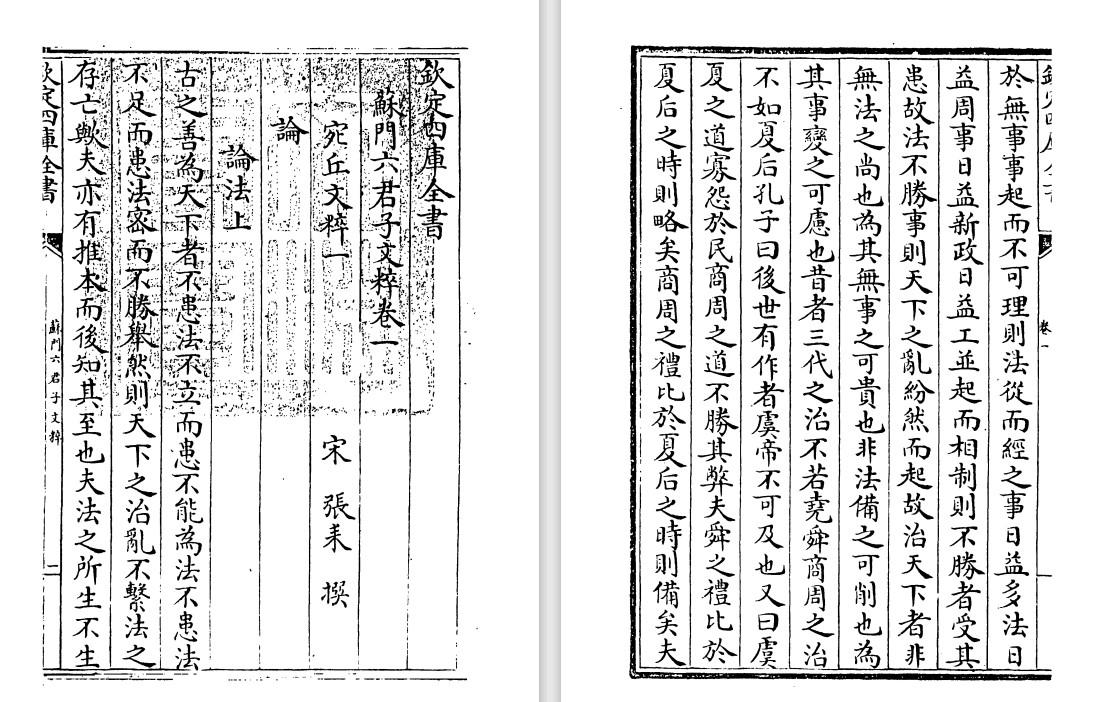 欽定四庫全書
蘇門六君子文粹卷一
宛丘文粹一 宋 張耒 撰
論
論法上
古之善為天下者不患法不立而患不能為法不患法
不足而患法密而不勝舉然則天下之治亂不繫法之
存亡歟夫亦有推本而後知其至也夫法之所生不生
欽定四庫全書 蘇門六君子文粹 二
卷一
於無事事起而不可理則法從而經之事日益多法日
益周事日益新政日益工並起而相制則不勝者受其
患故法不勝事則天下之亂紛然而起故治天下者非
無法之尚也為其無事之可貴也非法備之可削也為
其事變之可慮也昔者三代之治不若堯舜商周之治
不如夏后孔子曰後世有作者虞帝不可及也又曰虞
夏之道寡怨於民商周之道不勝其弊夫舜之禮比於
夏后之時則略矣商周之禮比於夏后之時則備矣夫